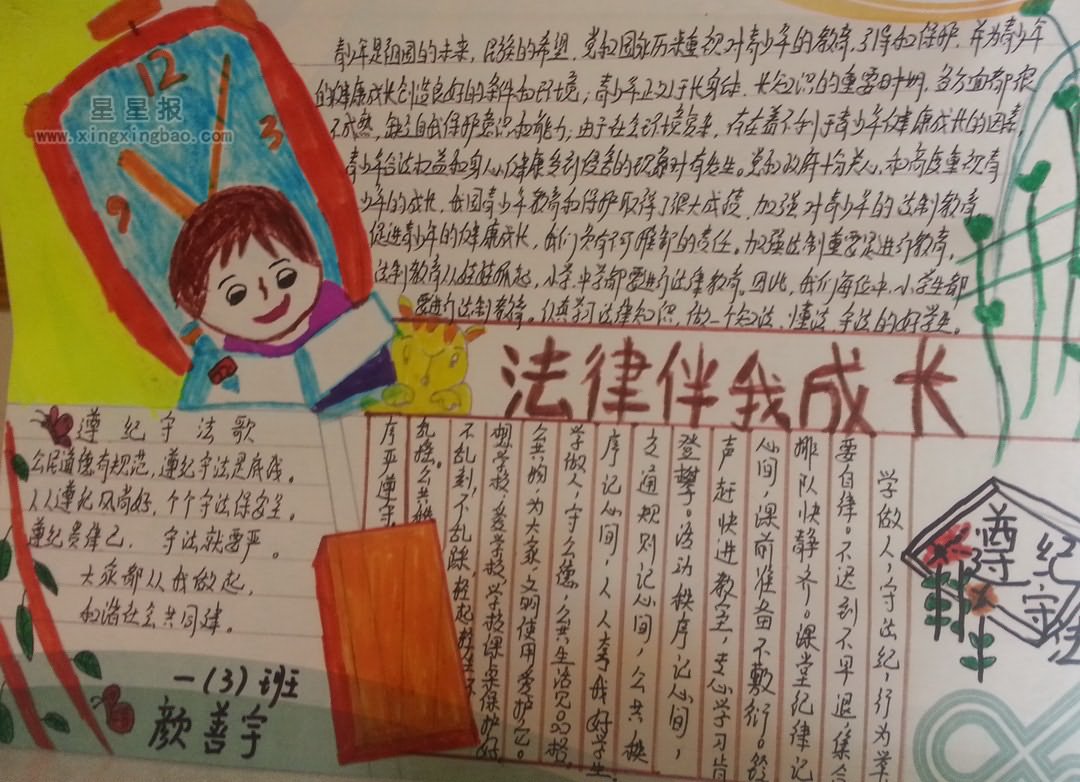 星星报
www.xingxingbao.com
12
3
9
青少年是祖国的未来，民族的希望，党和国家历来重视对青少年的教育、引导和保护，并为青少年
的健康成长创造良好的条件和环境；青少年正处于长身体、长知识的重要时期，各方面都很
不成熟，缺乏自我保护意识和能力；由于社会环境复杂，存在着不利于青少年健康成长的因素，
青少年合法权益和身心健康受到侵害的现象时有发生。党和政府十分关心和高度重视青
少年的成长，我国青少年教育和保护取得了很大成绩，加强对青少年的法制教育，
促进青少年的健康成长，我们负有不可推卸的责任。加强法制重要是进行教育，
法制教育从娃娃抓起，小学中学都要进行法律教育。因此，我们每位中、小学生都
要进行法制教育，认真学习法律知识，做一个知法、懂法、守法的好学生。
法律伴我成长
遵纪守法歌
公民道德有规范，遵纪守法是底线。
人人遵纪风尚好，个个守法保安全。
遵纪贵律己，守法就要严。
大家都从我做起，
和谐社会共同建。
一(3)班
颜善宇
学做人，守法纪，行为举
要自律。不迟到不早退集合
排队快静齐。课堂纪律记
心间，课前准备不敷衍。铃
声赶快进教室，专心学习肯
登攀。活动秩序记心间，
交通规则记心间，公共秩
序记心间，人人夸我好学生
学做人，守公德，公共生活见品格。
公共物为大家，文明使用爱护它。
想学校，爱学校，学校课桌保护好
不乱刻，不乱踩
乱摇。公共秩
序严遵守
遵纪
守法